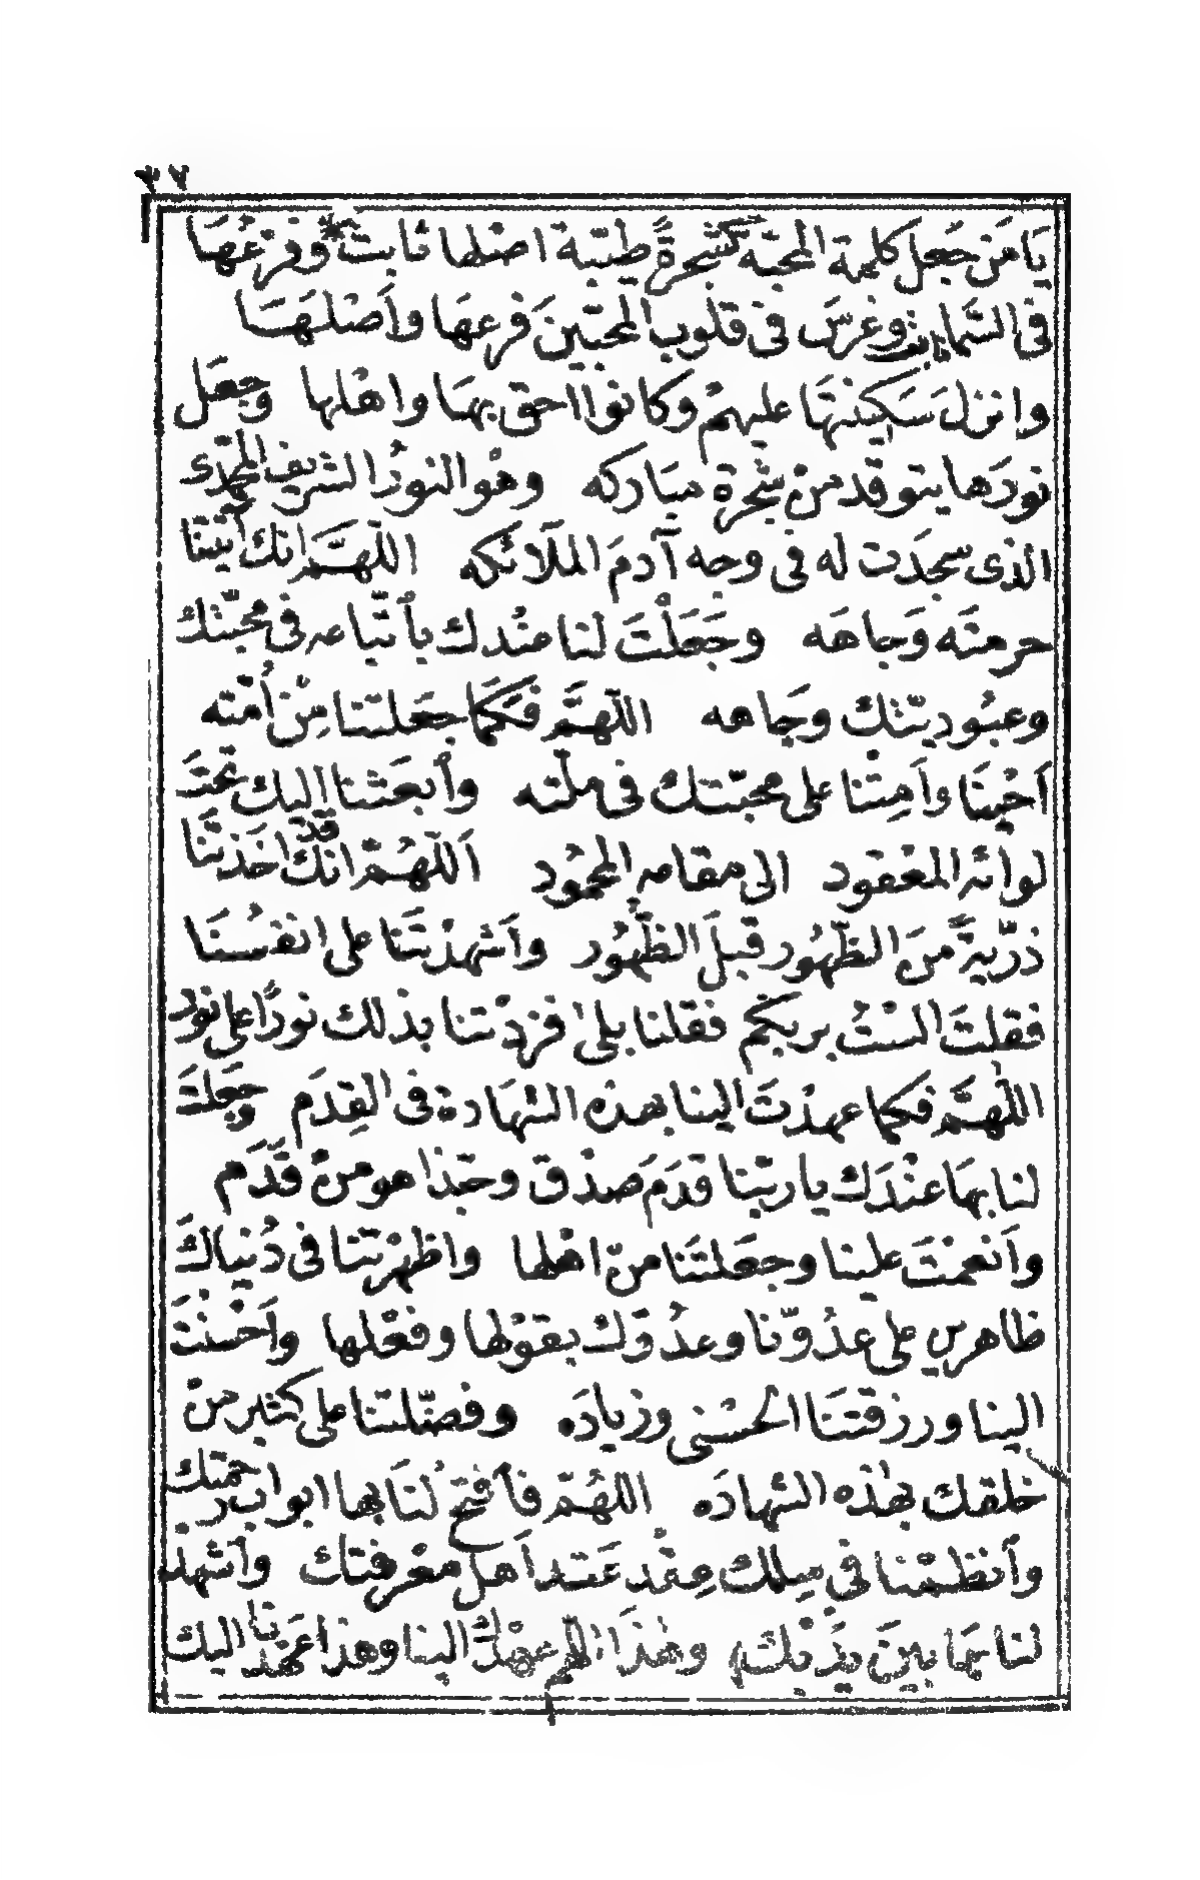 ٣٧
يَا مَنْ جَعَلَ كلمة المحبّة كَشجرةً طيّبة اصْلها ثابت وفرْعُهَا
فى السَّماء وغرسَ فى قلوب المحبّينَ فرعهَا وأصْلهَا
وانزلَ سَكينتهَا عليهمْ وكانوا احق بهَا واهْلها وجعَل
نورَها يتوقد منْ شجرة مبَاركه وهْو النورُ الشريف المحمّدى
الذى سجدَت له فى وجه آدمَ الملآئكه اللّهمَّ انك أتيتنا
حرمتَه وَجاهَه وجَعَلْتَ لنا عنْدك بأتّباعه فى محبّتك
وعبُوديّتك وجَاهه اللّهمَّ فكمَا جعَلتنا مِنْ أمّته
أحْيِنَا وأمِتْنا على محبّتك فى ملّته وأبعَثنا اليك تحتَ
لوائه المعْقود الى مقامه المحمُود اَللّهُمَّ انك قدْ اخَذتَّنا
ذرّيةً منَ الظّهُور قبلَ الظّهُور وأشهدْتَنا على انفسُنَا
فقلتَ الستُ بربكمْ فقلنا بلى فزدْتنا بذلك نورًا على نور
اللّهمَّ فكما عهدْتَ الينا بهذه الشهَادة فى القِدَم وجَعَلتَ
لنا بهَا عنْدَك يا ربّنا قدَمَ صدْق وحّذا هو منْ قدَم
وأنعمْتَ علينا وجعَلتَنا منْ اهْلها واظهرْتنا فى دُنياكَ
ظاهرين على عدُوّنا وعدُوّك بقوْلها وفعْلها وأحْسنْتَ
الينا ورزقتنَا الحُسْنى وزيادَه وفضّلتنا على كثير منْ
خلقك بهٰذه الشهادَه اللّهُمّ فأفتحْ لنَا بها ابواب رحمتك
وأنظمْنا فى سِلك عِقْد عَقد أهل معْرفتك وأشهدْ
لنا بمَا بينَ يدَيْكَ وهٰذا اللهم عهْدكَ الينا وهذا عَهْدنا اليك